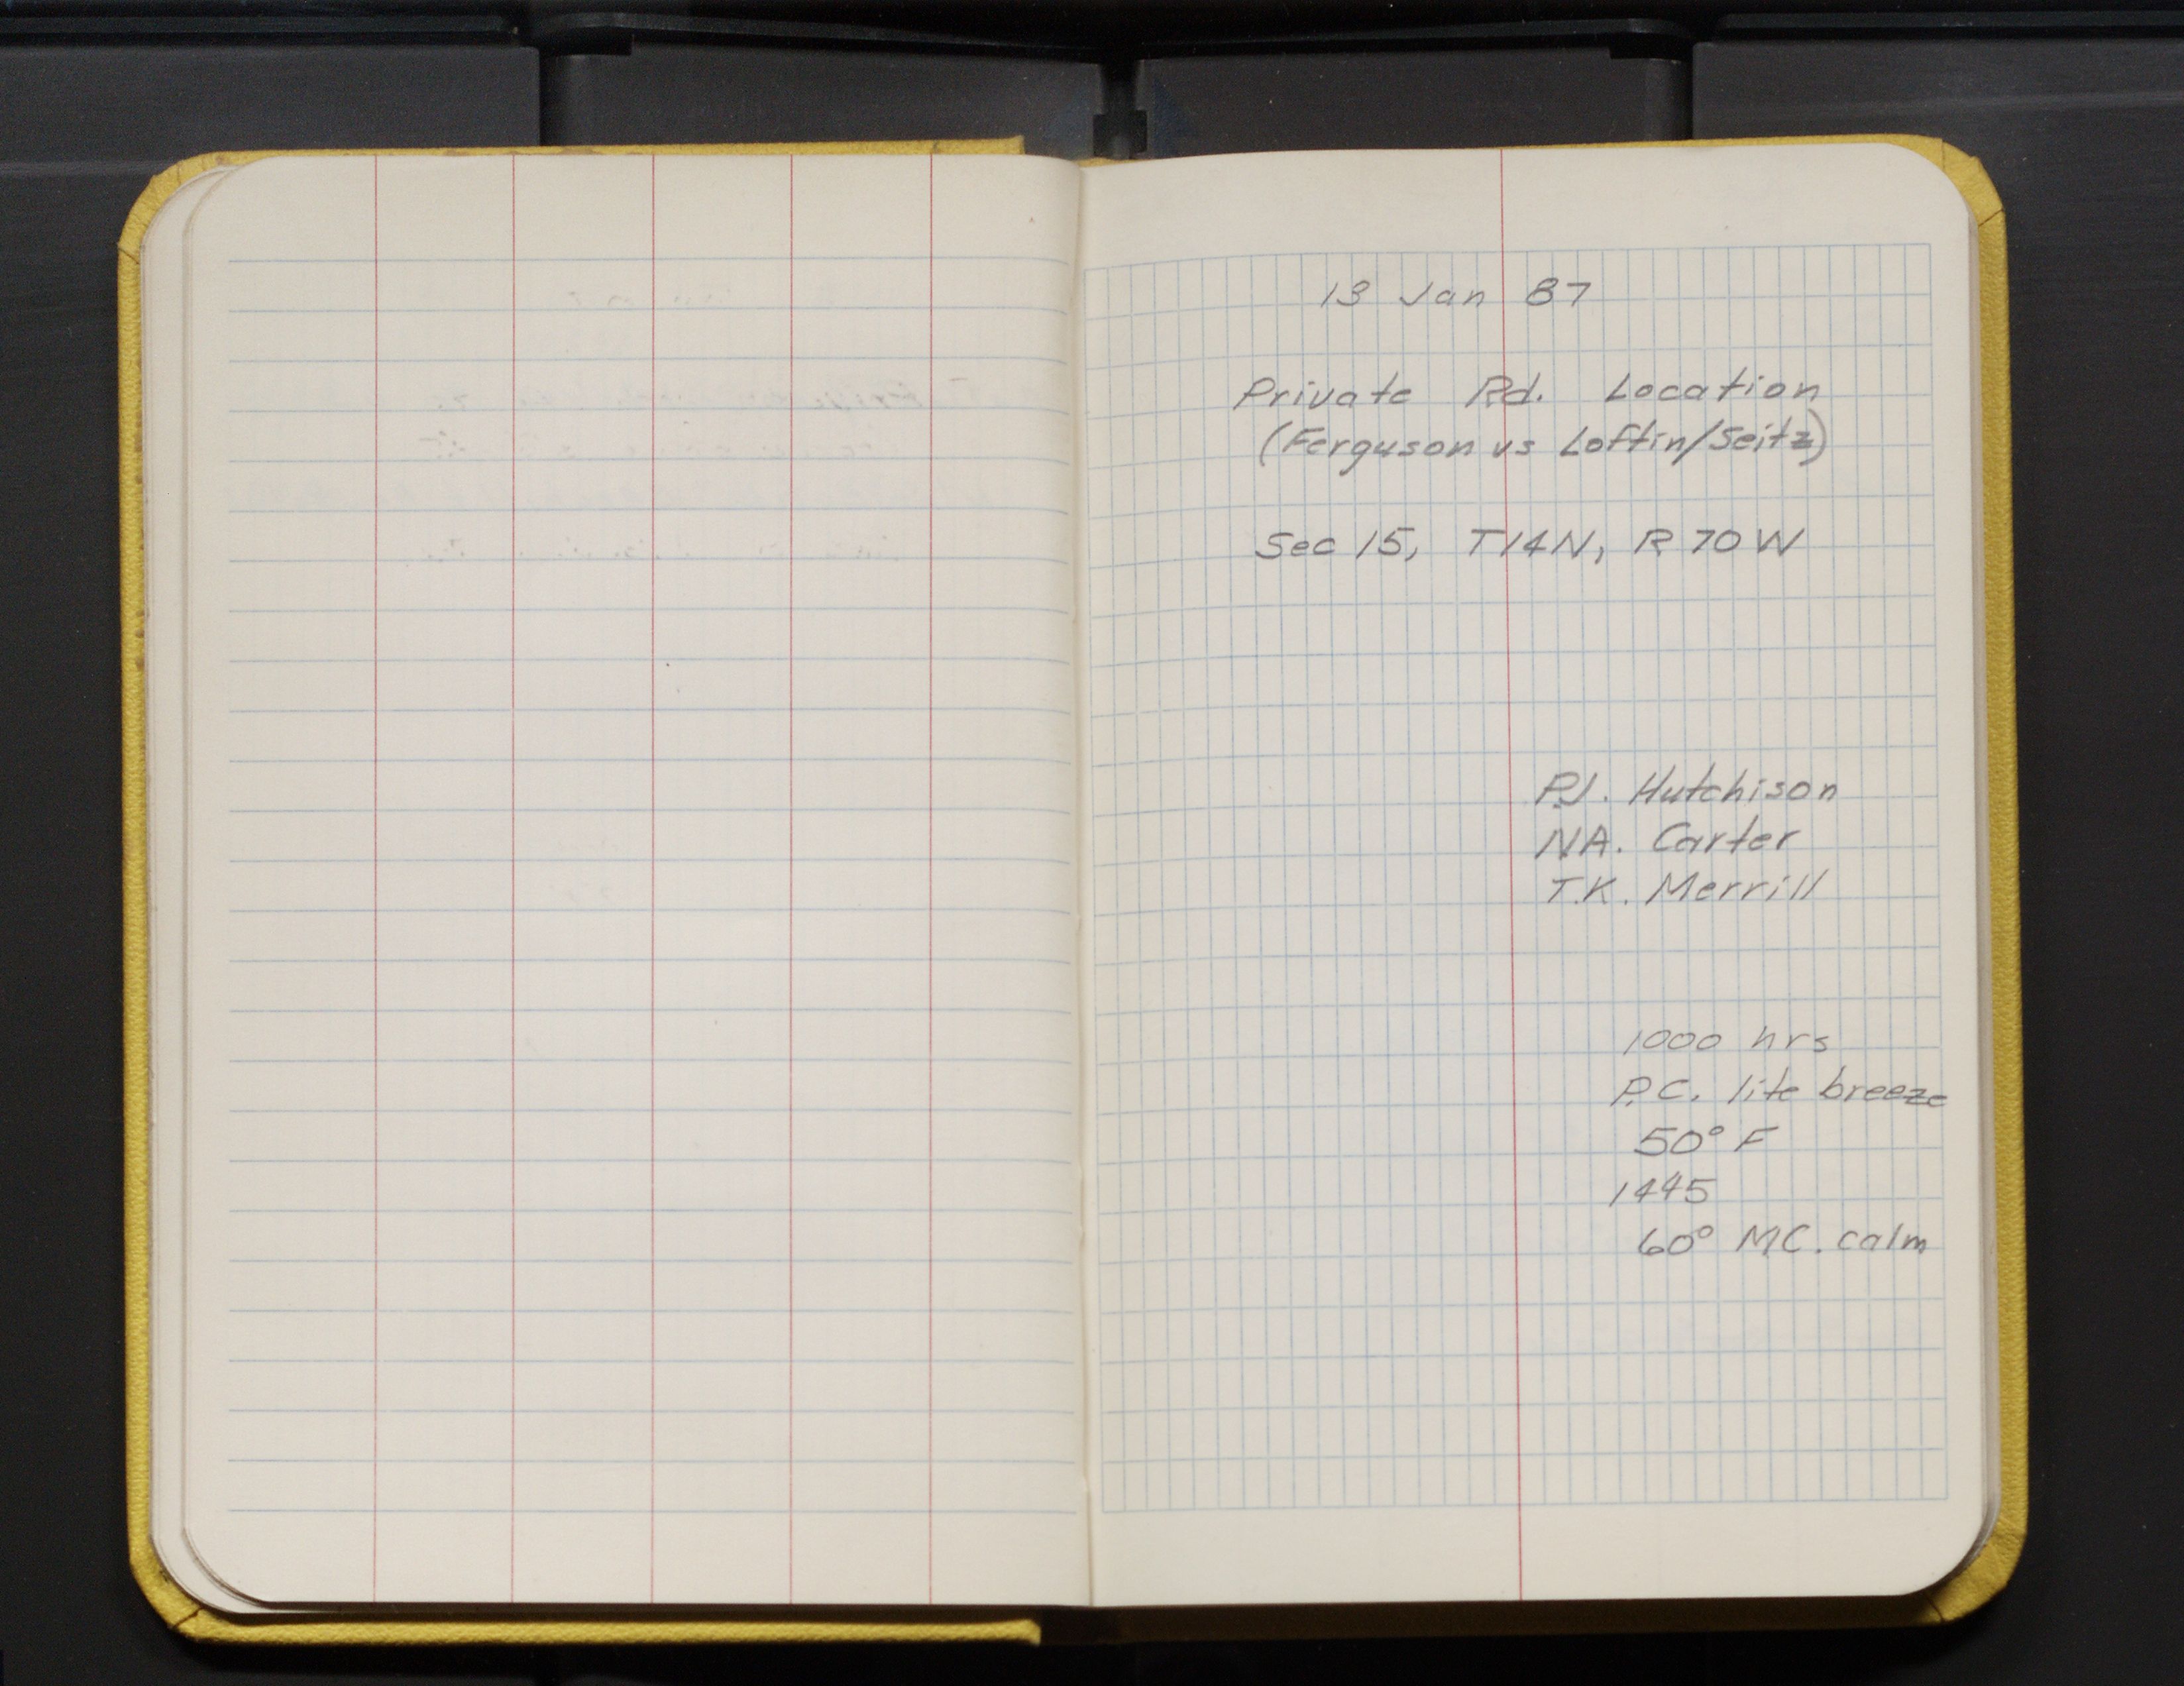 13 Jan 87
Private Rd. Location
(Ferguson vs Loftin/Seitz)
Sec 15, T14N, R70W
P.J. Hutchison
N.A. Carter
T.K. Merrill
1000 hrs
P.C. lite breeze
50° F
1445
60° M.C. calm